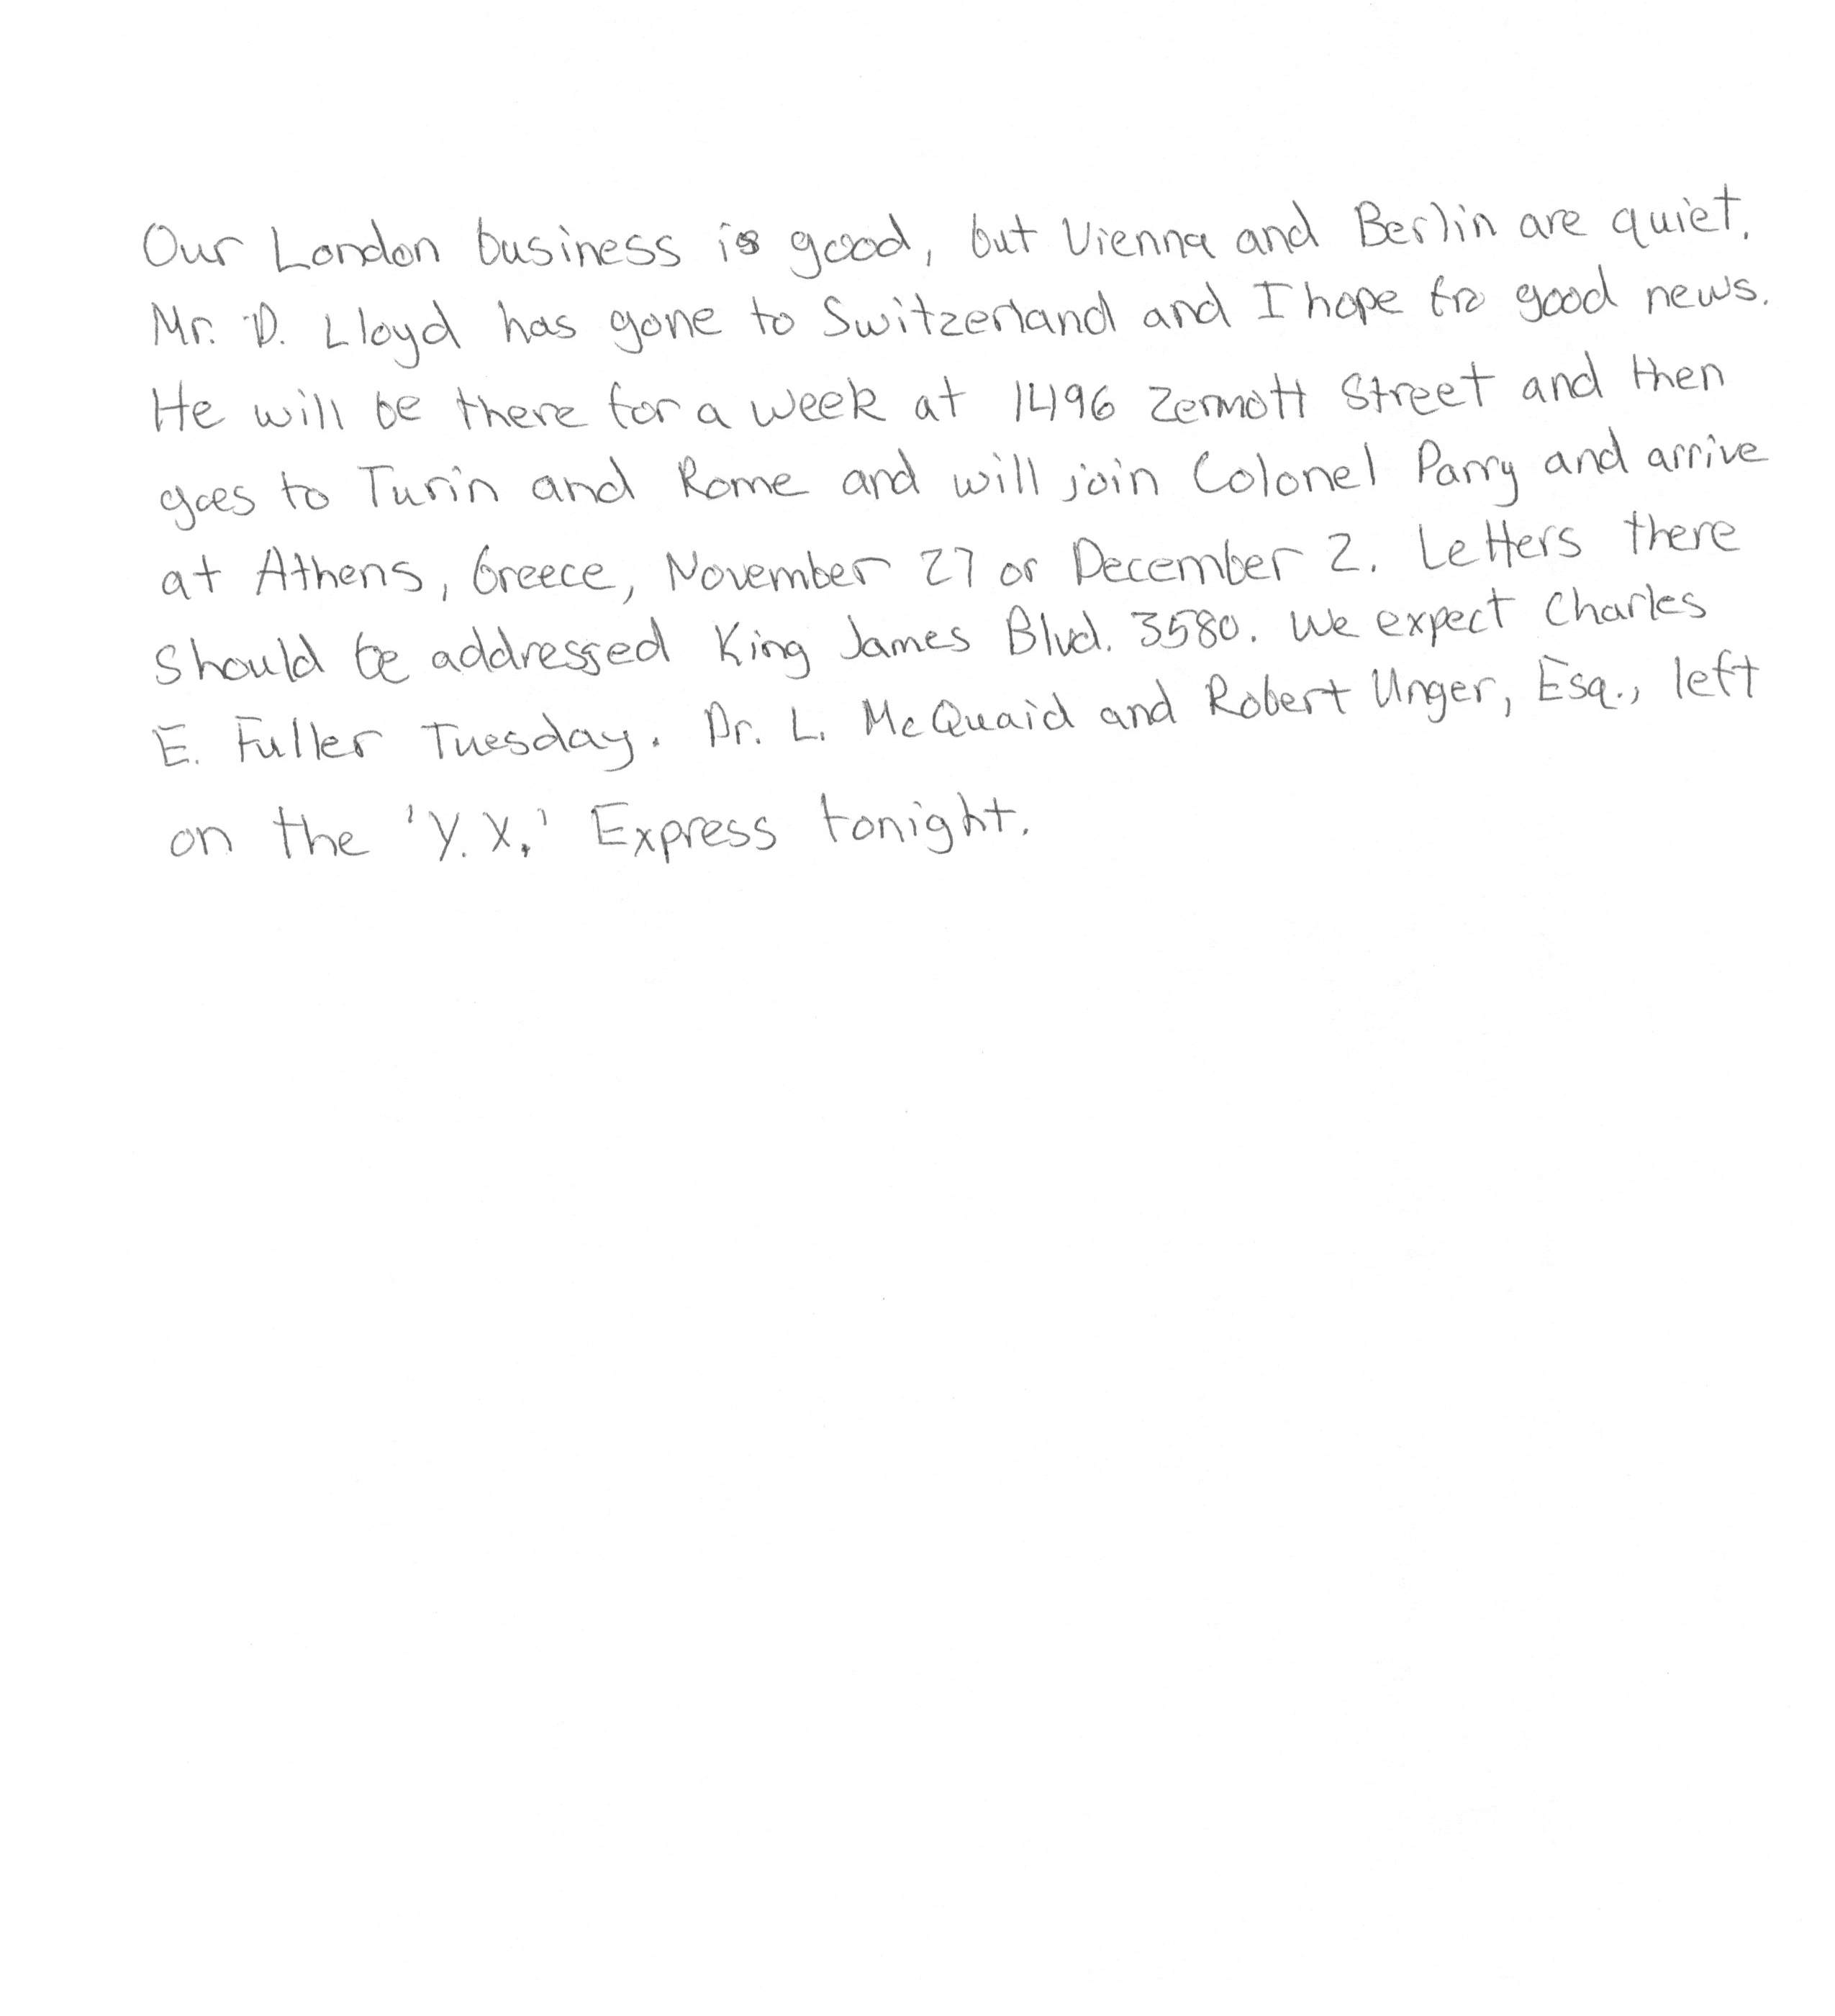 Our London business is good, but Vienna and Berlin are quiet.
Mr. D. Lloyd has gone to Switzerland and I hope fro good news.
He will be there for a week at 1496 Zermott Street and then
goes to Turin and Rome and will join Colonel Parry and arrive
at Athens, Greece, November 27 or December 2. Letters there
should be addressed King James Blvd. 3580. We expect Charles
E. Fuller Tuesday. Dr. L. McQuaid and Robert Unger, Esq., left
on the 'Y.X.' Express tonight.